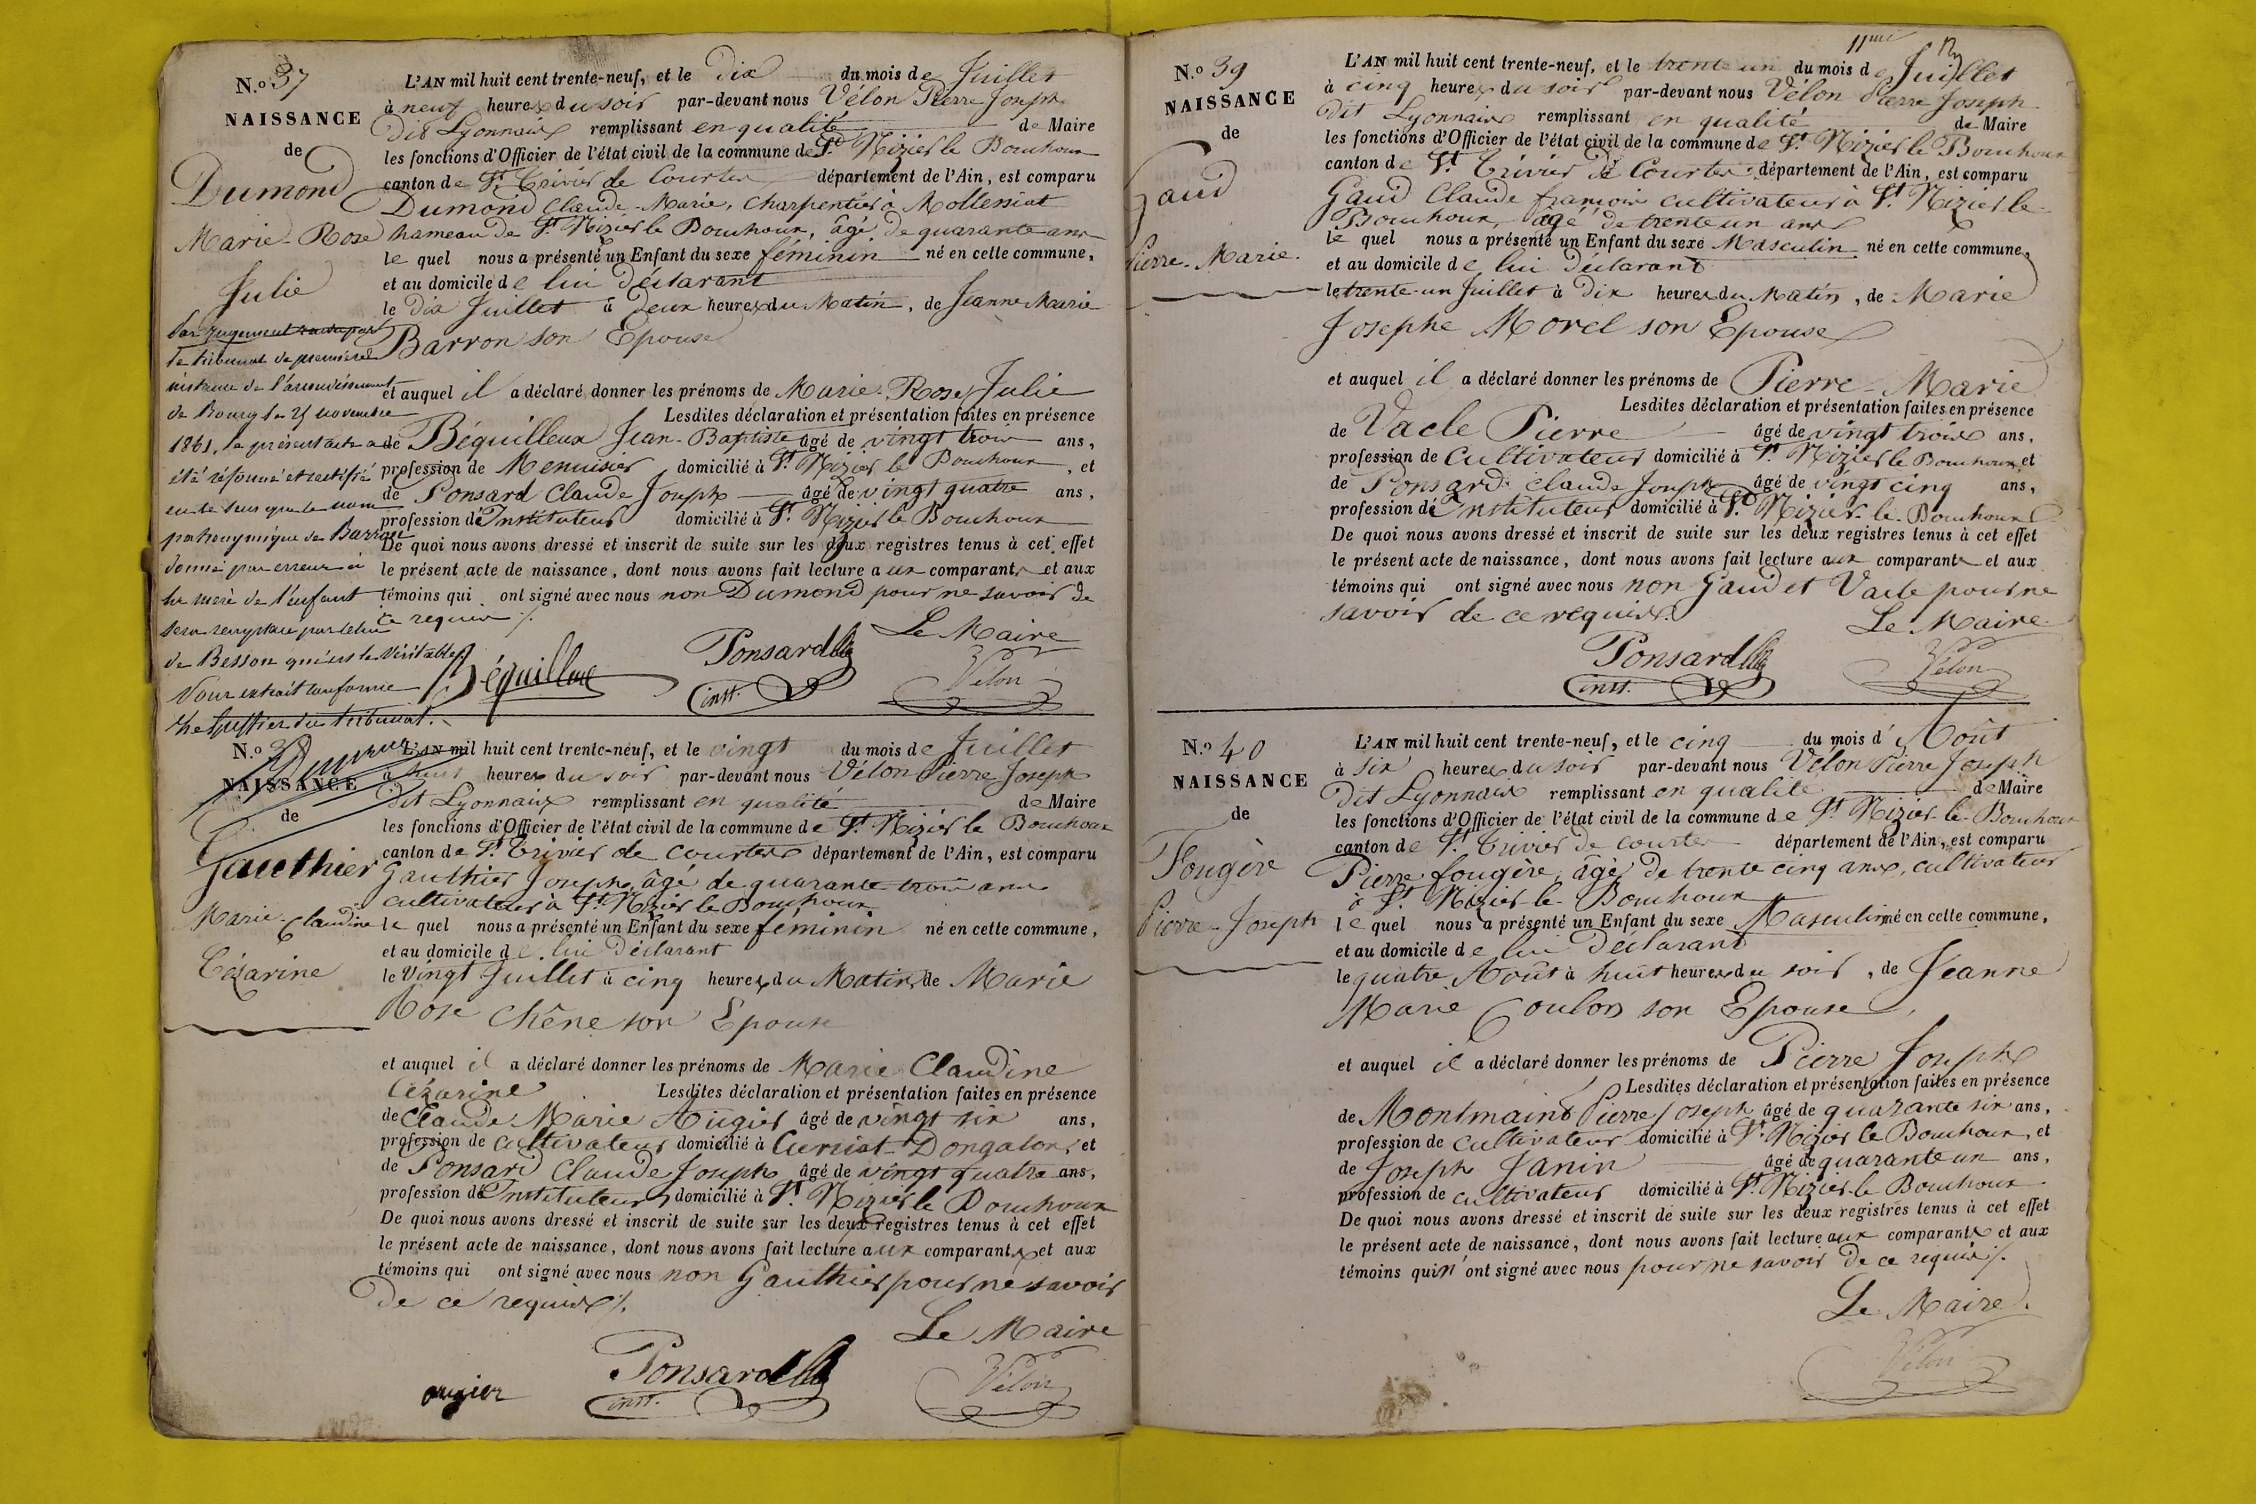 N.o 37
NAISSANCE
de
Dumond
Marie-Rose
Julie
Par jugement rendu par
le tribunal de première
instance de l'arrondissement
de Bourg le 25 novembre
1861, le présent acte a
été réformé et rectifié
en ce sens que le nom
patronymique de Barron
donné par erreur à
la mère de l'enfant
sera remplacé par celui
de Besson qui est le véritable
Pour extrait conforme
le greffier du tribunal.
L'AN mil huit cent trente-neuf, et le dix du mois de Juillet
à neuf heures du soir par-devant nous Vélon Pierre Joseph
dit Lyonnais remplissant en qualité de Maire
les fonctions d'Officier de l'état civil de la commune de St. Nizier le Bouchoux
canton de St. Trivier de Courtes département de l'Ain, est comparu
Dumond Claude-Marie, charpentier à Molleniat
hameau de St. Nizier le Bouchoux, âgé de quarante ans
le quel nous a présenté un Enfant du sexe féminin né en cette commune,
et au domicile de lui déclarant
le dix Juillet à deux heures du Matin, de Jeanne Marie
Barron son Epouse
et auquel il a déclaré donner les prénoms de Marie-Rose Julie
Lesdites déclaration et présentation faites en présence
de Béquilleux Jean-Baptiste âgé de vingt trois ans,
profession de Menuisier domicilié à St. Nizier le Bouchoux, et
de Ponsard Claude Joseph âgé de vingt quatre ans,
profession d'Instituteur domicilié à St. Nizier le Bouchoux
De quoi nous avons dressé et inscrit de suite sur les deux registres tenus à cet effet
le présent acte de naissance, dont nous avons fait lecture aux comparants et aux
témoins qui ont signé avec nous non Dumond pour ne savoir de
ce requis /.
Le Maire
Béquilleux Ponsard Vélon
inst.
N.o
NAISSANCE
de
Gauthier
Marie-Claudine
Cézarine
L'AN mil huit cent trente-neuf, et le vingt du mois de Juillet
à huit heures du soir par-devant nous Vélon Pierre Joseph
dit Lyonnais remplissant en qualité de Maire
les fonctions d'Officier de l'état civil de la commune de St. Nizier le Bouchoux
canton de St. Trivier de Courtes département de l'Ain, est comparu
Gauthier Joseph, âgé de quarante trois ans
cultivateur à St. Nizier le Bouchoux
le quel nous a présenté un Enfant du sexe féminin né en cette commune,
et au domicile de lui déclarant
le vingt Juillet à cinq heures du Matin, de Marie
Rose Chêne son Epouse
et auquel il a déclaré donner les prénoms de Marie Claudine
Cézarine Lesdites déclaration et présentation faites en présence
de Claude Marie Augier âgé de vingt six ans,
profession de cultivateur domicilié à Curciat-Dongalon, et
de Ponsard Claude Joseph âgé de vingt quatre ans,
profession d'Instituteur domicilié à St. Nizier le Bouchoux
De quoi nous avons dressé et inscrit de suite sur les deux registres tenus à cet effet
le présent acte de naissance, dont nous avons fait lecture aux comparants et aux
témoins qui ont signé avec nous non Gauthier pour ne savoir
de ce requis /.
Le Maire
augier Ponsard Vélon
inst.
11me
N.o 39
NAISSANCE
de
Gaud
Pierre-Marie
L'AN mil huit cent trente-neuf, et le trente un du mois de Juillet
à cinq heures du soir par-devant nous Vélon Pierre Joseph
dit Lyonnais remplissant en qualité de Maire
les fonctions d'Officier de l'état civil de la commune de St. Nizier le Bouchoux
canton de St. Trivier de Courtes département de l'Ain, est comparu
Gaud Claude françois cultivateur à St. Nizier le
Bouchoux, âgé de trente un ans
le quel nous a présenté un Enfant du sexe Masculin né en cette commune,
et au domicile de lui déclarant
le trente-un Juillet à dix heures du Matin, de Marie
Josephe Morel son Epouse
et auquel il a déclaré donner les prénoms de Pierre-Marie
Lesdites déclaration et présentation faites en présence
de Vacle Pierre âgé de vingt trois ans,
profession de cultivateur domicilié à St. Nizier le Bouchoux, et
de Ponsard Claude Joseph âgé de vingt cinq ans,
profession d'Instituteur domicilié à St. Nizier-le-Bouchoux
De quoi nous avons dressé et inscrit de suite sur les deux registres tenus à cet effet
le présent acte de naissance, dont nous avons fait lecture aux comparants et aux
témoins qui ont signé avec nous non Gaud et Vacle pour ne
savoir de ce requis.
Le Maire
Ponsard Vélon
inst.
N.o 40
NAISSANCE
de
Fougère
Pierre-Joseph
L'AN mil huit cent trente-neuf, et le cinq du mois d'Août
à six heures du soir par-devant nous Vélon Pierre Joseph
dit Lyonnais remplissant en qualité de Maire
les fonctions d'Officier de l'état civil de la commune de St. Nizier-le-Bouchoux
canton de St. Trivier de Courtes département de l'Ain, est comparu
Pierre fougère, âgé de trente cinq ans, cultivateur
à St. Nizier-le-Bouchoux
le quel nous a présenté un Enfant du sexe Masculin né en cette commune,
et au domicile de lui déclarant
le quatre Août à huit heures du soir, de Jeanne
Marie Coulon son Epouse,
et auquel il a déclaré donner les prénoms de Pierre Joseph
Lesdites déclaration et présentation faites en présence
de Montmain Pierre Joseph âgé de quarante six ans,
profession de cultivateur domicilié à St. Nizier le Bouchoux, et
de Joseph Janin âgé de quarante un ans,
profession de cultivateur domicilié à St. Nizier-le Bouchoux
De quoi nous avons dressé et inscrit de suite sur les deux registres tenus à cet effet
le présent acte de naissance, dont nous avons fait lecture aux comparants et aux
témoins qui n'ont signé avec nous pour ne savoir de ce requis /.
Le Maire
Vélon